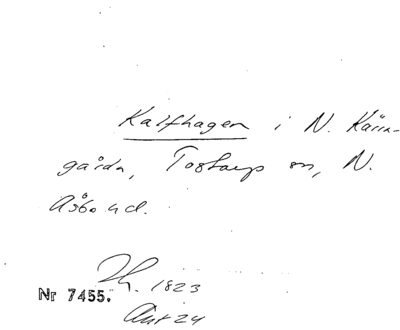 Kalfhagen i N. Kärra-
gårdn, Tostarp sn, N.
Åsbo hd.
Nr 7455. 1823
Akt 24